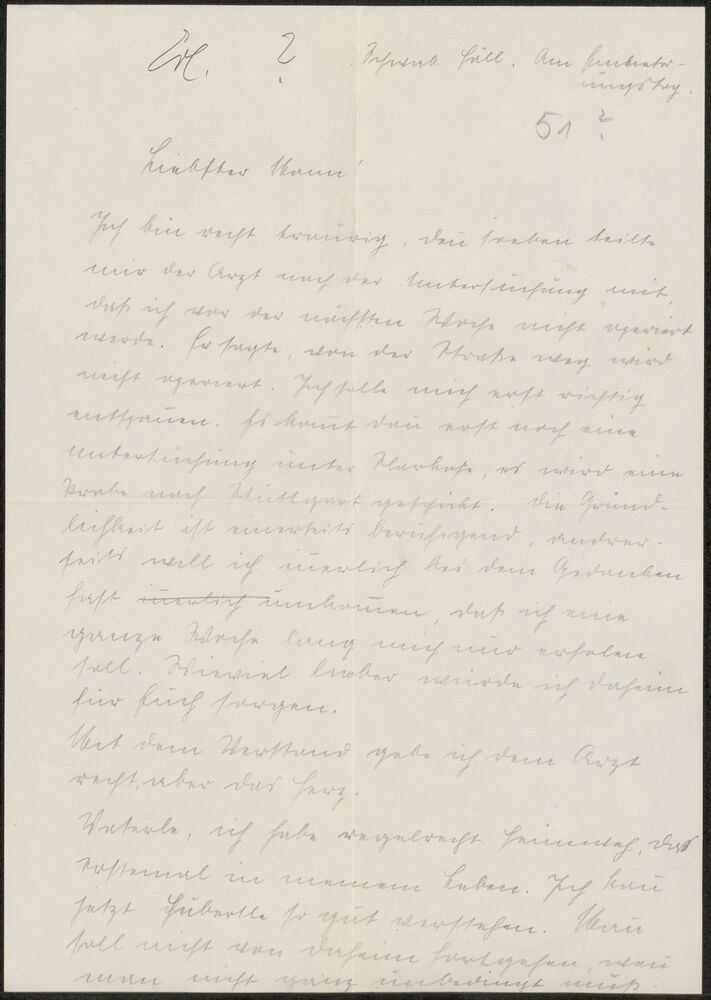 Erl. ?
Schwäb. Hall. Am Einlieferungstag.
51 ?
Liebster Mann!
Ich bin recht traurig, den̄ soeben teilte
mir der Arzt nach der Untersuchung mit,
daß ich vor der nächsten Woche nicht operiert
werde. Er sagte, von der Straße weg wird
nicht operiert. Ich solle mich erst richtig
entspan̄en. Es kom̄t dan̄ erst noch eine
Untersuchung unter Narkose, es wird eine
Probe nach Stuttgart geschickt. Die Gründ-
lichkeit ist einerseits beruhigend, andrer-
seits will ich in̄erlich bei dem Gedanken
fast in̄erlich umkom̄en, daß ich eine
ganze Woche lang mich nur erholen
soll. Wieviel lieber würde ich daheim
für Euch sorgen.
Mit dem Verstand gebe ich dem Arzt
recht, aber das Herz.
Vaterle, ich habe regelrecht Heimweh, das
erstemal in meinem Leben. Ich kan̄
jetzt Hubertle so gut verstehen. Man̄
soll nicht von daheim fortgehen, wen̄
man nicht ganz unbedingt muß.